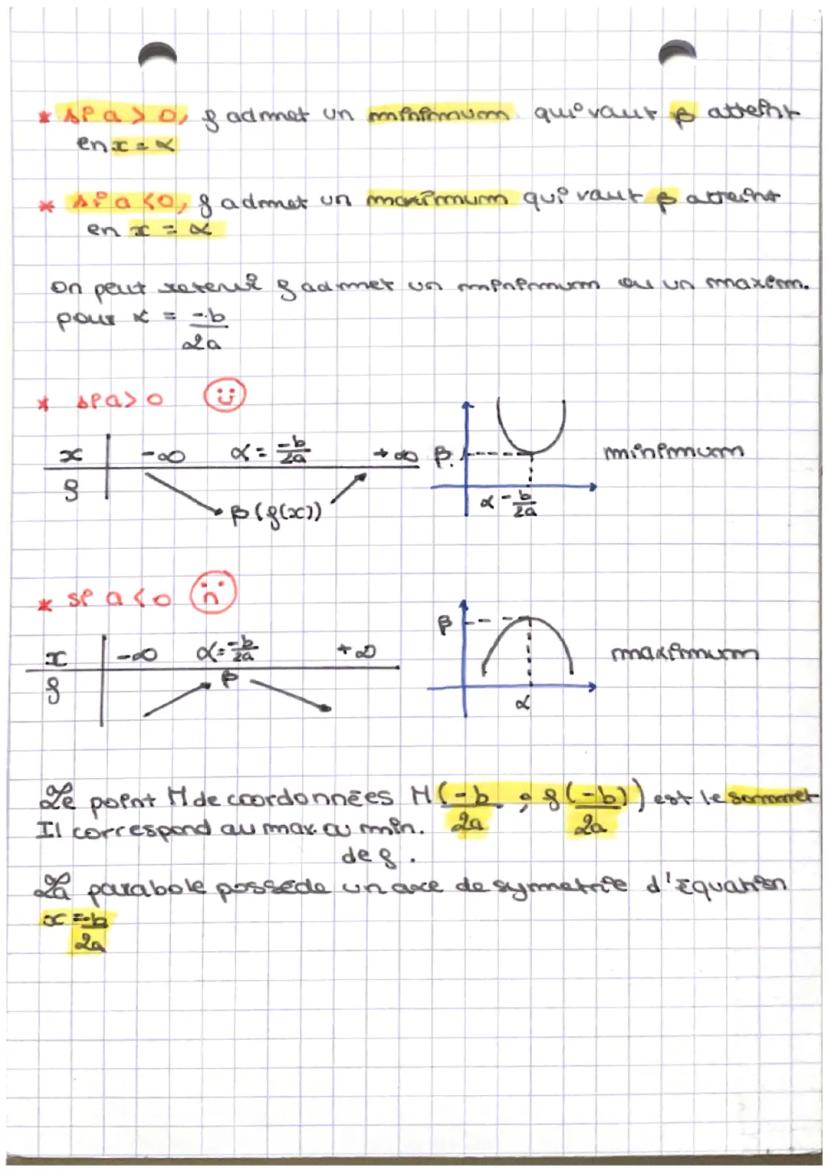 * si a > 0, f admet un minimum qui vaut β atteint
en x = α
* si a < 0, f admet un maximum qui vaut β atteint
en x = α
On peut retenir f admet un minimum ou un maxim.
pour x = -b/2a
* si a > 0
x -∞ α = -b/2a +∞
f β (f(x))
β
α -b/2a
minimum
* si a < 0
x -∞ α = -b/2a +∞
f β
β
α
maximum
Le point M de coordonnées M(-b/2a ; f(-b/2a)) est le sommet
Il correspond au max ou min.
de f.
La parabole possède un axe de symmetrie d'équation
x = -b/2a